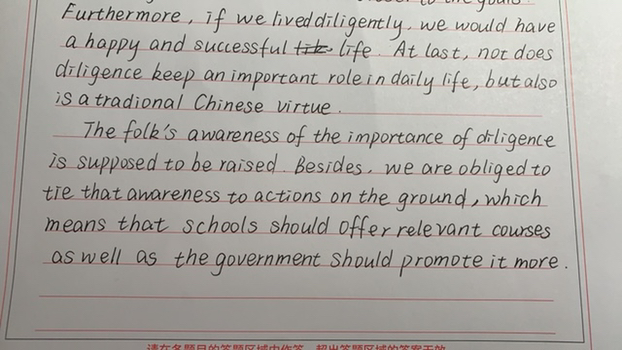 to the goals.
Furthermore, if we lived diligently, we would have
a happy and successful life. At last, not does
diligence keep an important role in daily life, but also
is a tradional Chinese virtue.
The folk's awareness of the importance of diligence
is supposed to be raised. Besides, we are obliged to
tie that awareness to actions on the ground, which
means that schools should offer relevant courses
as well as the government should promote it more.
请在各题目的答题区域内作答，超出答题区域的答案无效